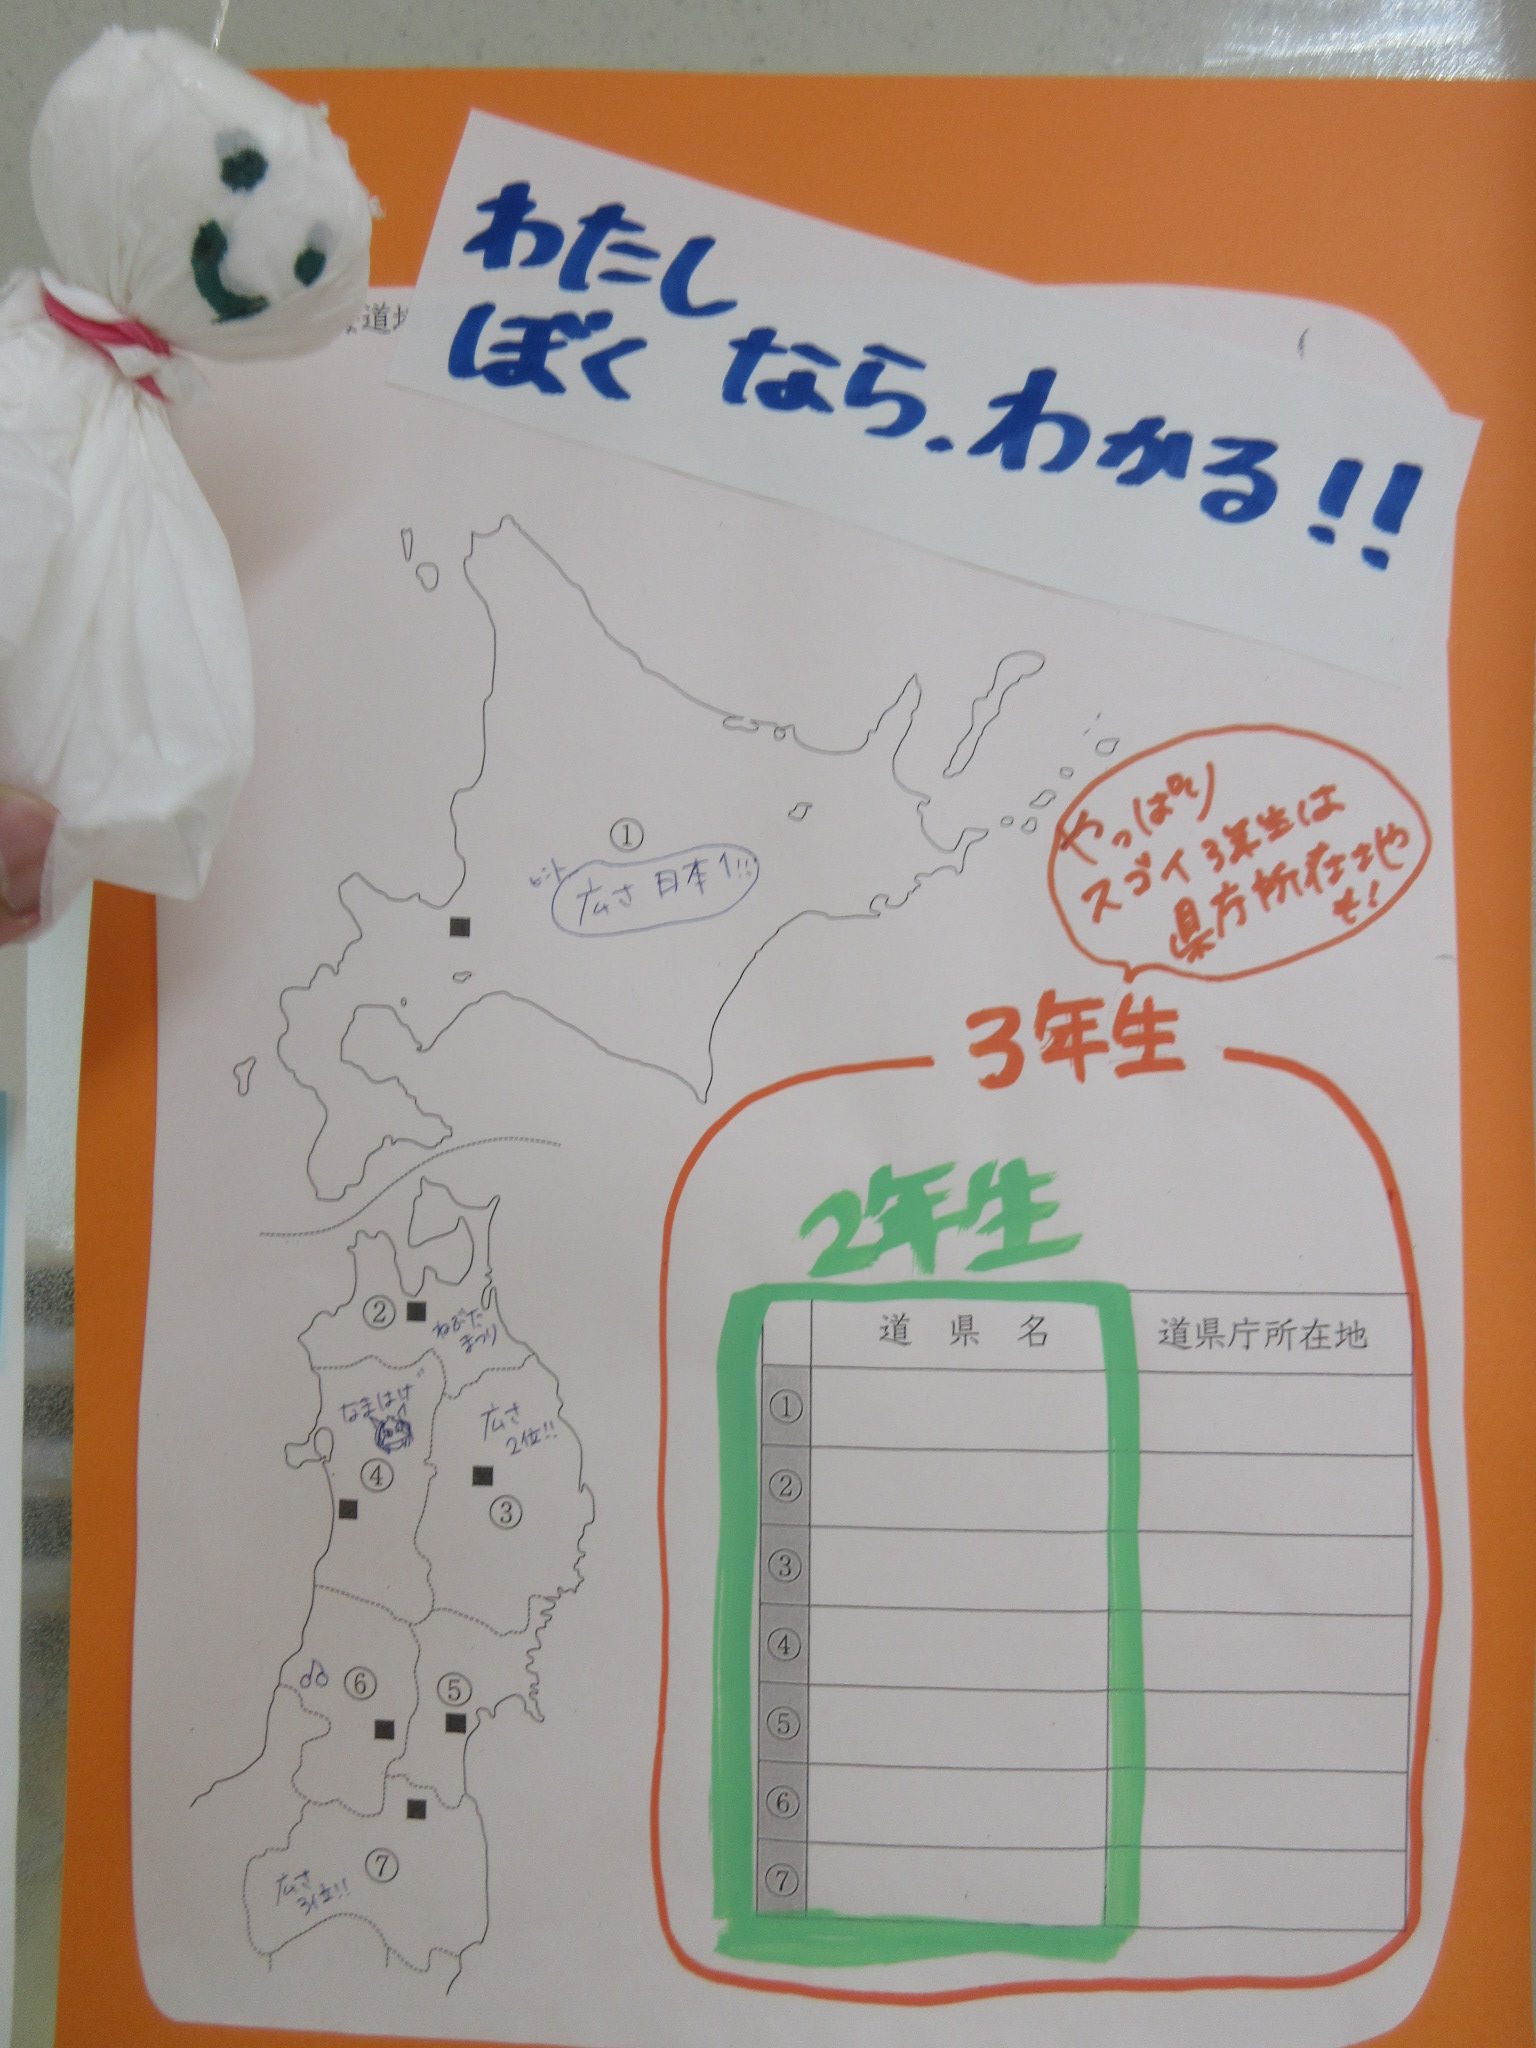 わたし
ぼく なら、わかる!!
道
①
ヒント
広さ 日本1!!
やっぱり
スゴイ 3年生は
県庁所在地や
も!
3年生
2年生
道 県 名 道県庁所在地
①
②
③
④
⑤
⑥
⑦
②
ねぶた
まつり
なまはげ
広さ
2位!!
④
③
⑥
⑤
⑦
広さ
3位!!